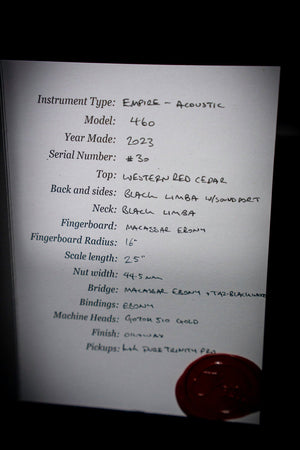 Instrument Type: EMPIRE - ACOUSTIC
Model: 460
Year Made: 2023
Serial Number: #30
Top: WESTERN RED CEDAR
Back and sides: BLACK LIMBA W/SOUNDPORT
Neck: BLACK LIMBA
Fingerboard: MACASSAR EBONY
Fingerboard Radius: 16"
Scale length: 25"
Nut width: 44.5mm
Bridge: MACASSAR EBONY
Bindings: EBONY
Machine Heads: GOTOH 510 GOLD
Finish:
Pickups: TRINITY PRO